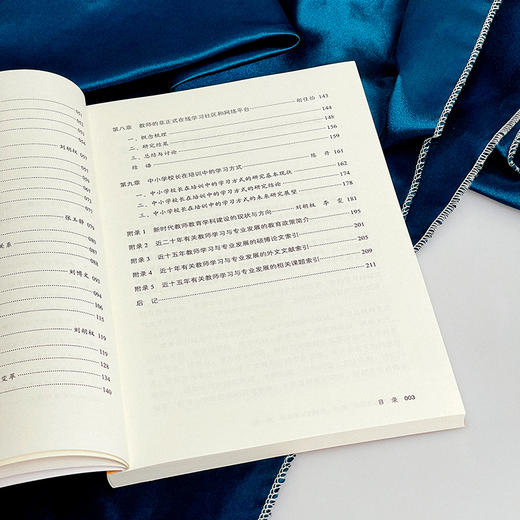 051
057
刘胡权
059
060
062
071
074
张玉静
078
079
关系
085
刘博文
094
096
106
115
刘胡权 119
119
128
变革 134
140
第八章 教师的非正式在线学习社区和网络平台 胡佳怡 143
一、概念梳理 144
二、研究结果 148
三、总结与讨论 156
结语 159
第九章 中小学校长在培训中的学习方式 陈丹 161
一、中小学校长在培训中的学习方式的研究基本现状 162
二、中小学校长在培训中的学习方式的研究结论 174
三、中小学校长在培训中的学习方式的未来研究展望 178
附录1 新时代教师教育学科建设的现状与方向 刘胡权 李雯 181
附录2 近二十年有关教师学习与专业发展的教育政策简介 195
附录3 近十五年教师学习与专业发展的硕博论文索引 205
附录4 近十年有关教师学习与专业发展的外文文献索引 209
附录5 近十五年有关教师学习与专业发展的相关课题索引 211
后记
目录 003